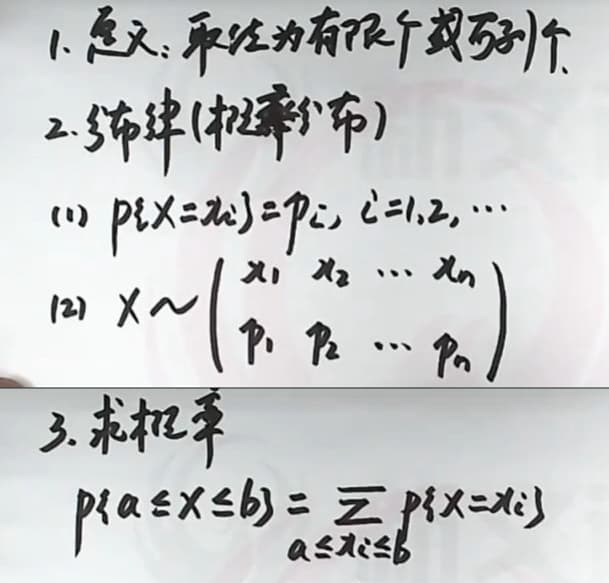 1. 定义: 取值为有限个或可列个.
2. 分布律(概率分布)
(1) P{X=xi}=pi, i=1,2,…
(2) X~( x1 x2 … xn
p1 p2 … pn )
3. 求概率
P{a≤X≤b}= Σ P{X=xi}
a≤xi≤b